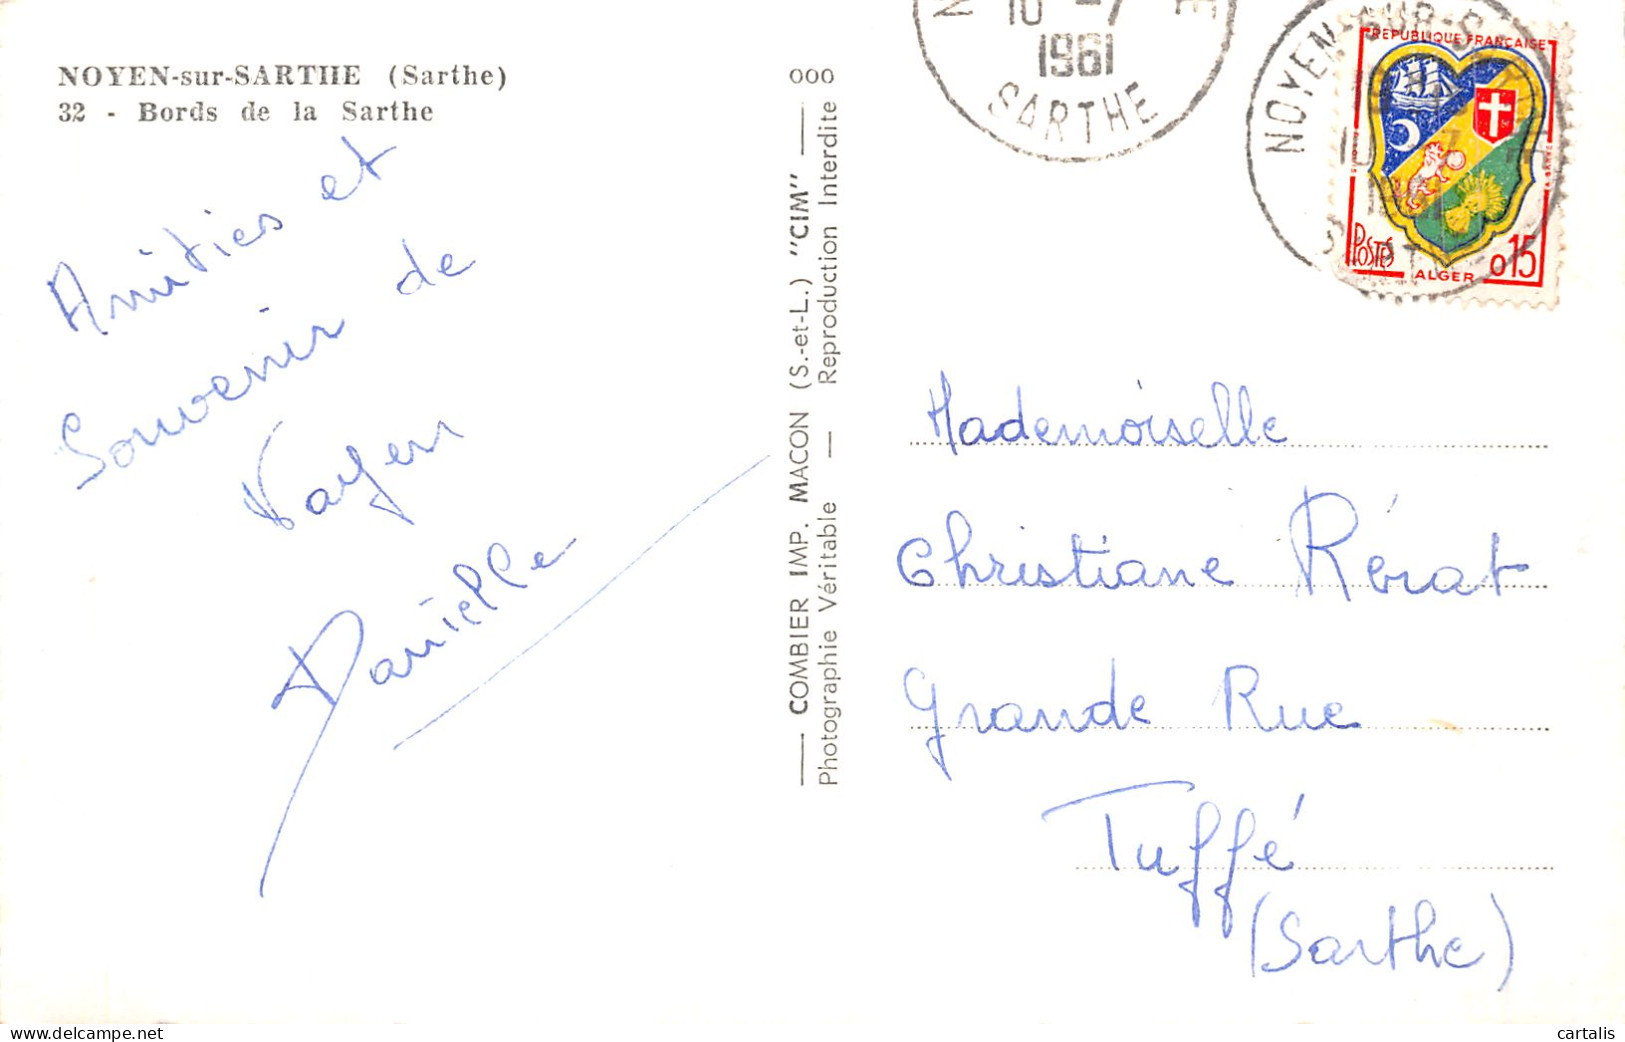 NOYEN-sur-SARTHE (Sarthe)
32 - Bords de la Sarthe
Amitiés et
Souvenir de
Noyen
Danielle
000
COMBIER IMP. MACON (S.-et-L.) "CIM"
Photographie Véritable — Reproduction Interdite
10 -7
1961
SARTHE
NOYEN-SUR-S
10
REPUBLIQUE FRANÇAISE
POSTES
ALGER
0,15
Mademoiselle
Christiane Rérat
Grande Rue
Tuffé
(Sarthe)
cartalis